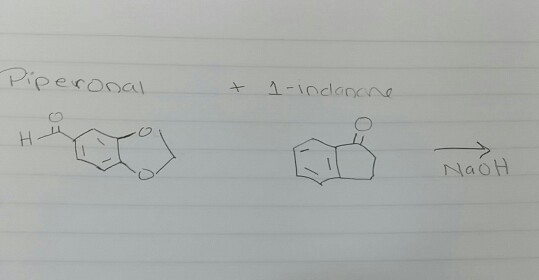 Piperonal + 1-indanone
O O
H O
O
NaOH